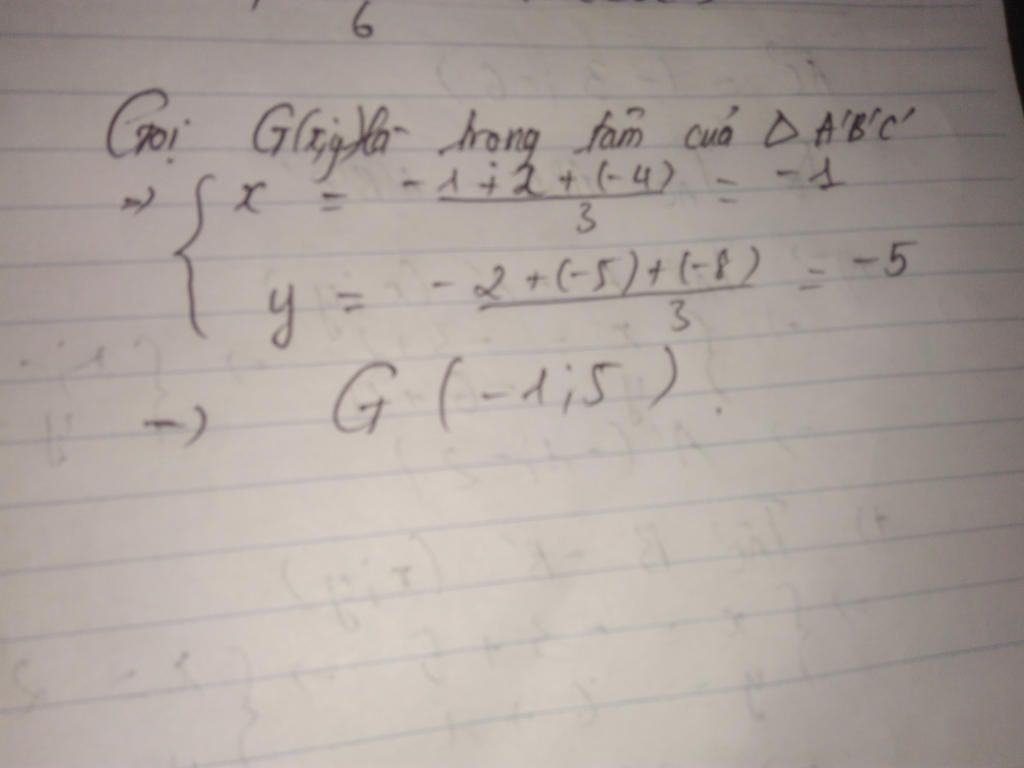 6
Gọi G(x;y) là trọng tâm của Δ A'B'C'
=> { x = -1+2+(-4) / 3 = -1
y = -2+(-5)+(-8) / 3 = -5
-> G (-1;5).